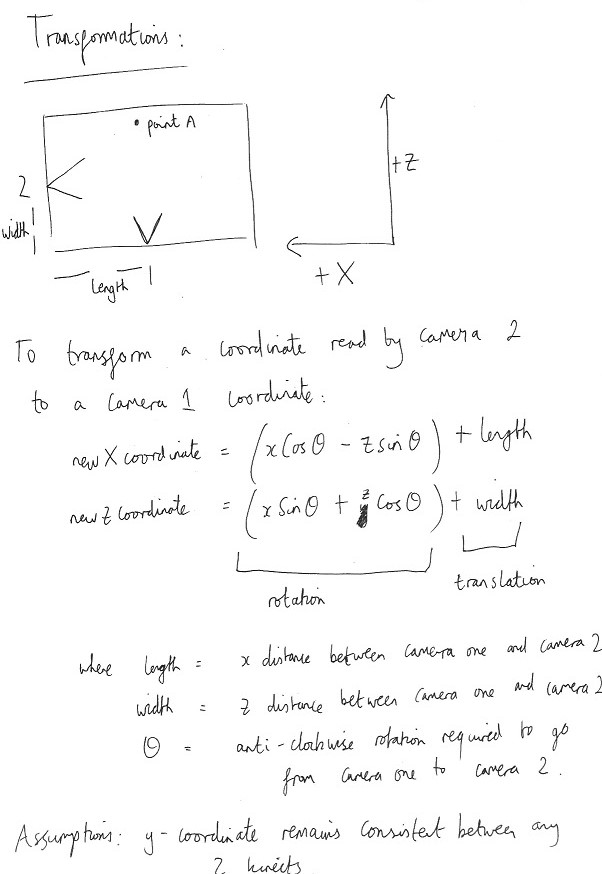 Transformations:
• point A
+Z
2
width
length 1
+ X
To transform a coordinate read by camera 2
to a camera 1 coordinate:
new X coordinate = (x Cos θ - z sin θ) + length
new Z coordinate = (x Sin θ + z Cos θ) + width
rotation
translation
where length = x distance between camera one and camera 2
width = z distance between camera one and camera 2
θ = anti-clockwise rotation required to go
from camera one to camera 2.
Assumptions: y-coordinate remains consistent between any
2 kinects